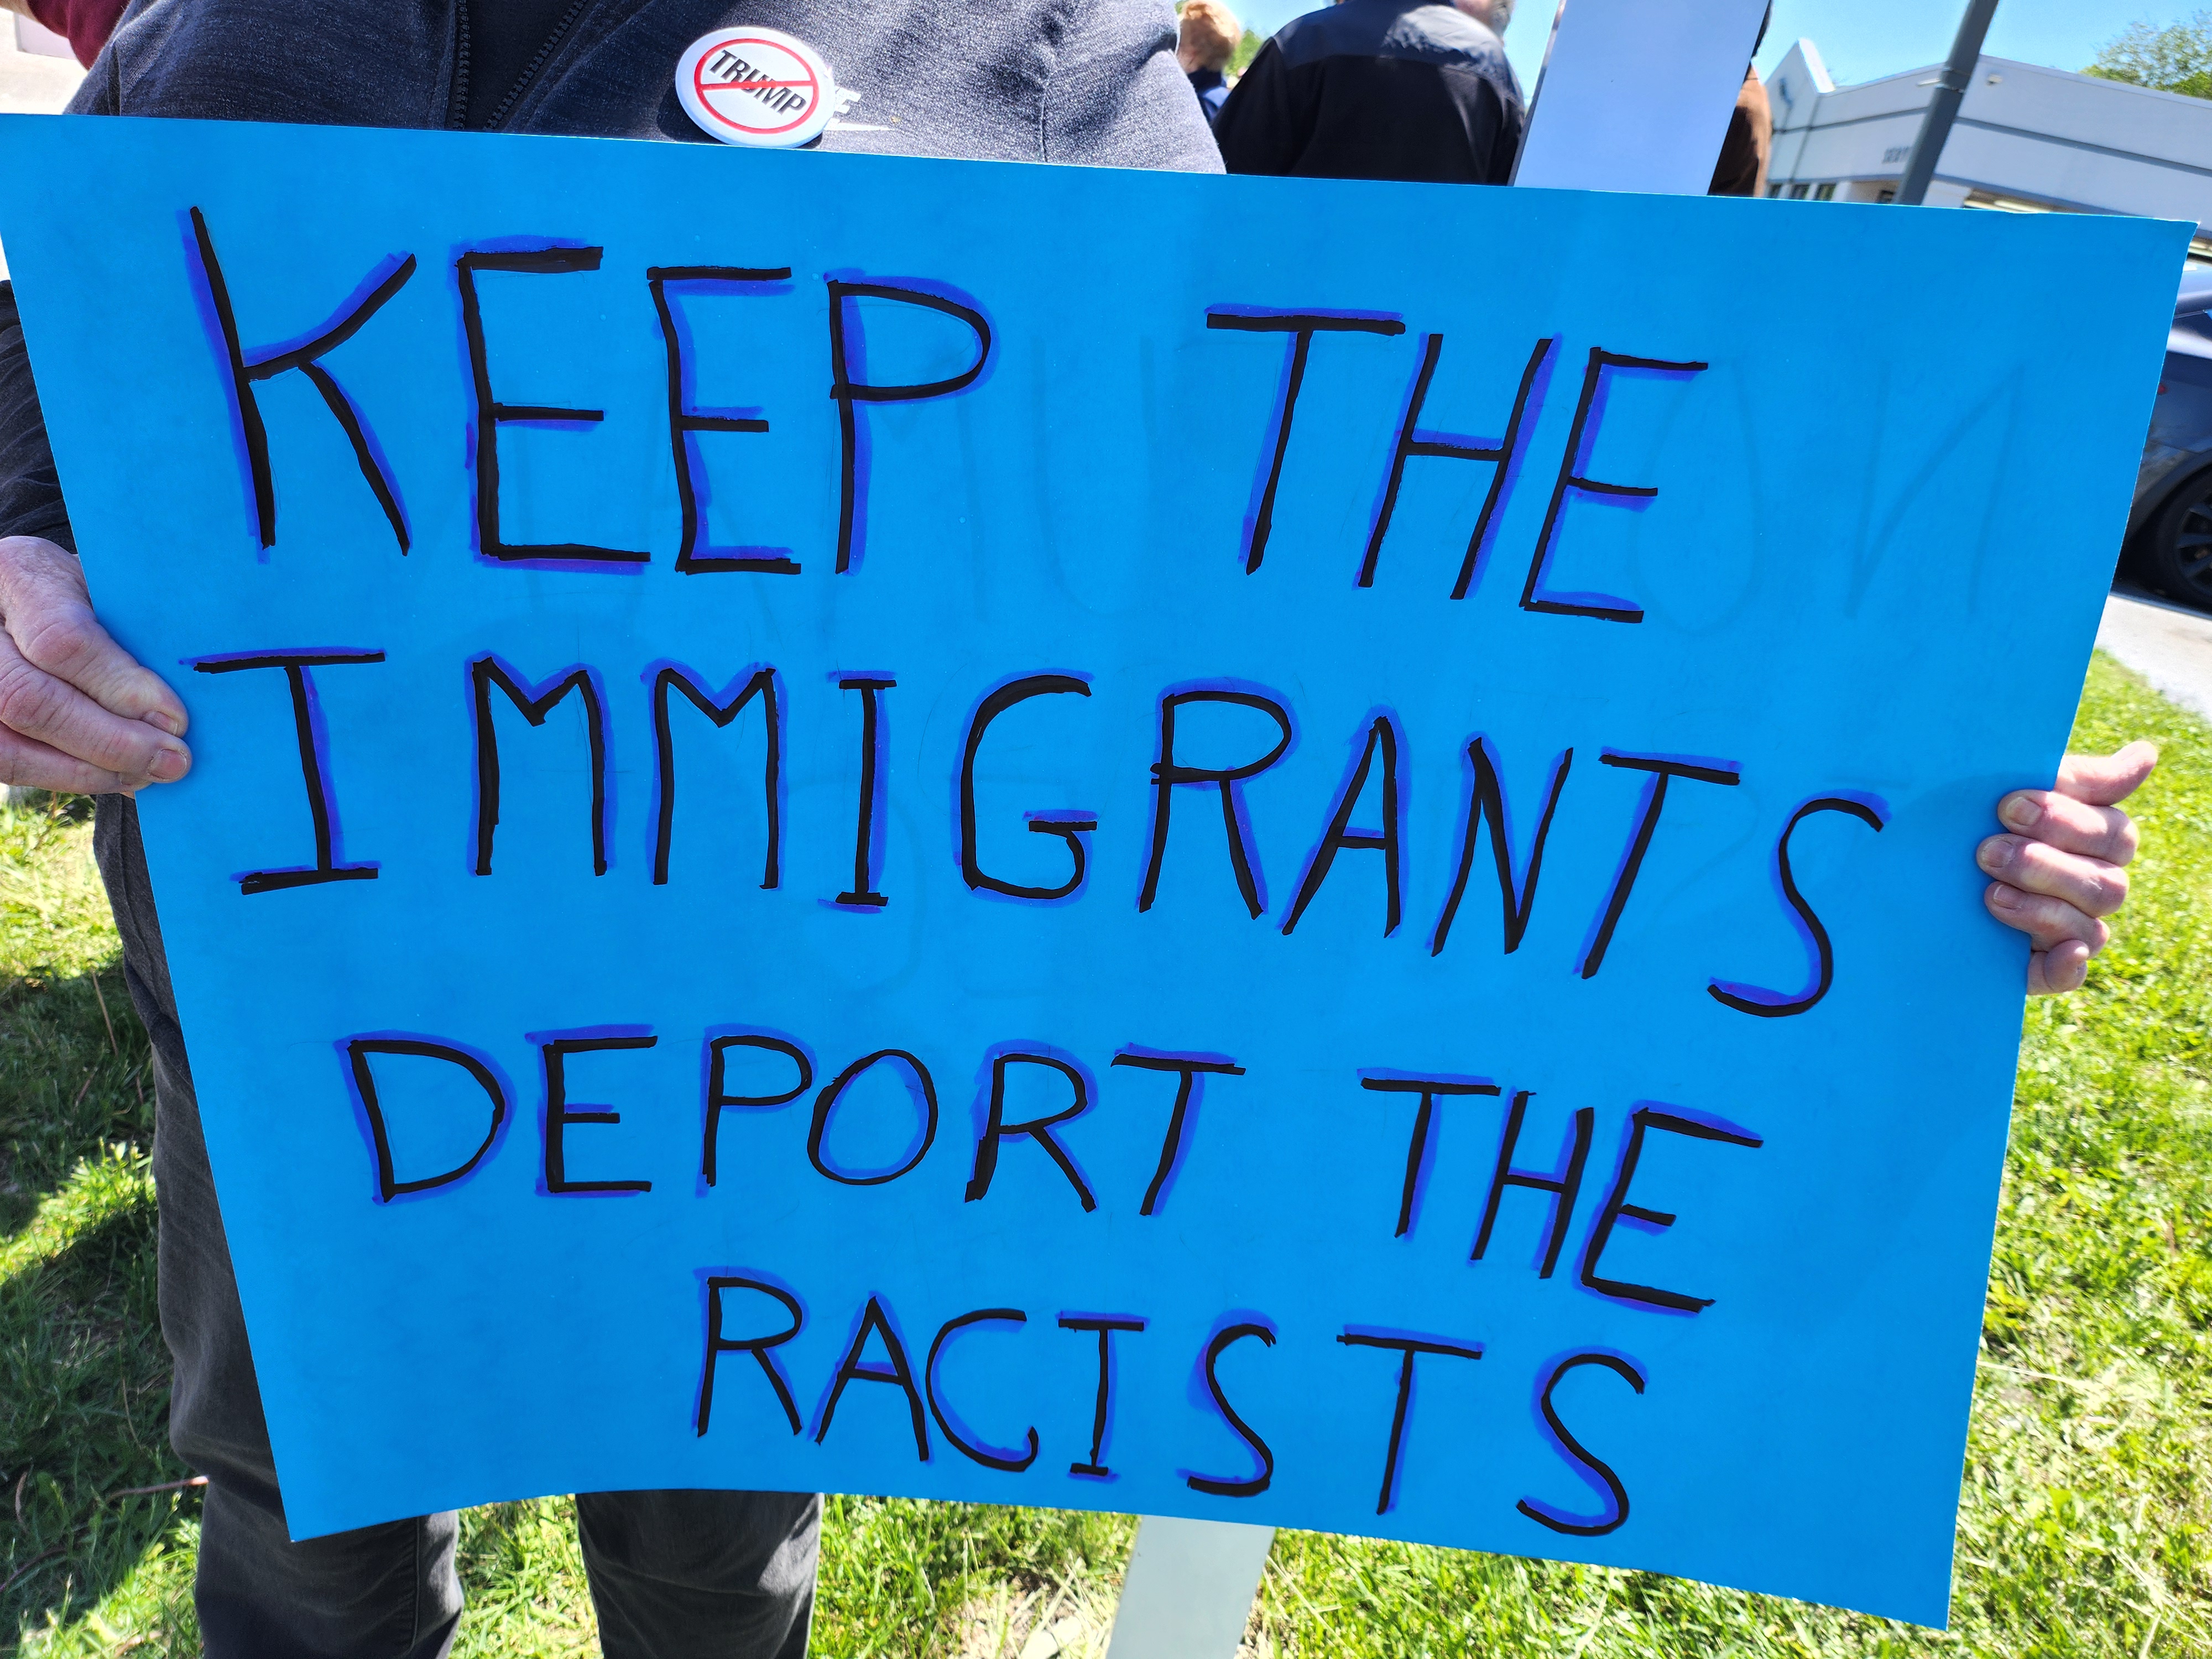 TRUMP
KEEP THE
IMMIGRANTS
DEPORT THE
RACISTS